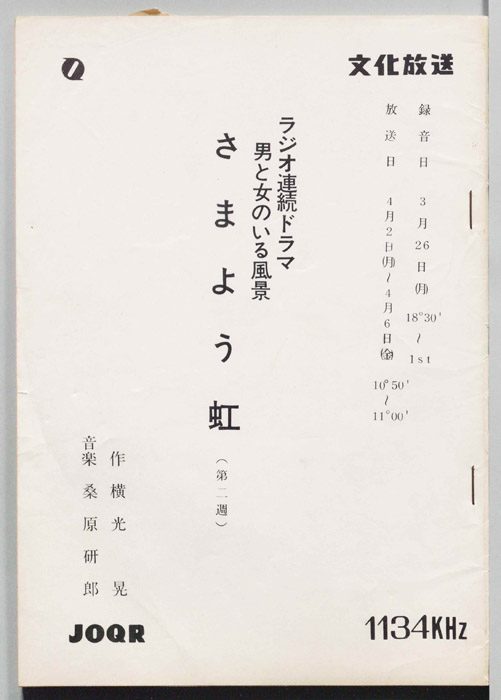 文化放送
録音日 3月26日(月) 18°30'〜1st
放送日 4月2日(月)〜4月6日(金) 10°50'〜11°00'
ラジオ連続ドラマ
男と女のいる風景
さまよう虹(第二週)
作 横光 晃
音楽 桑原研郎
JOQR
1134KHz